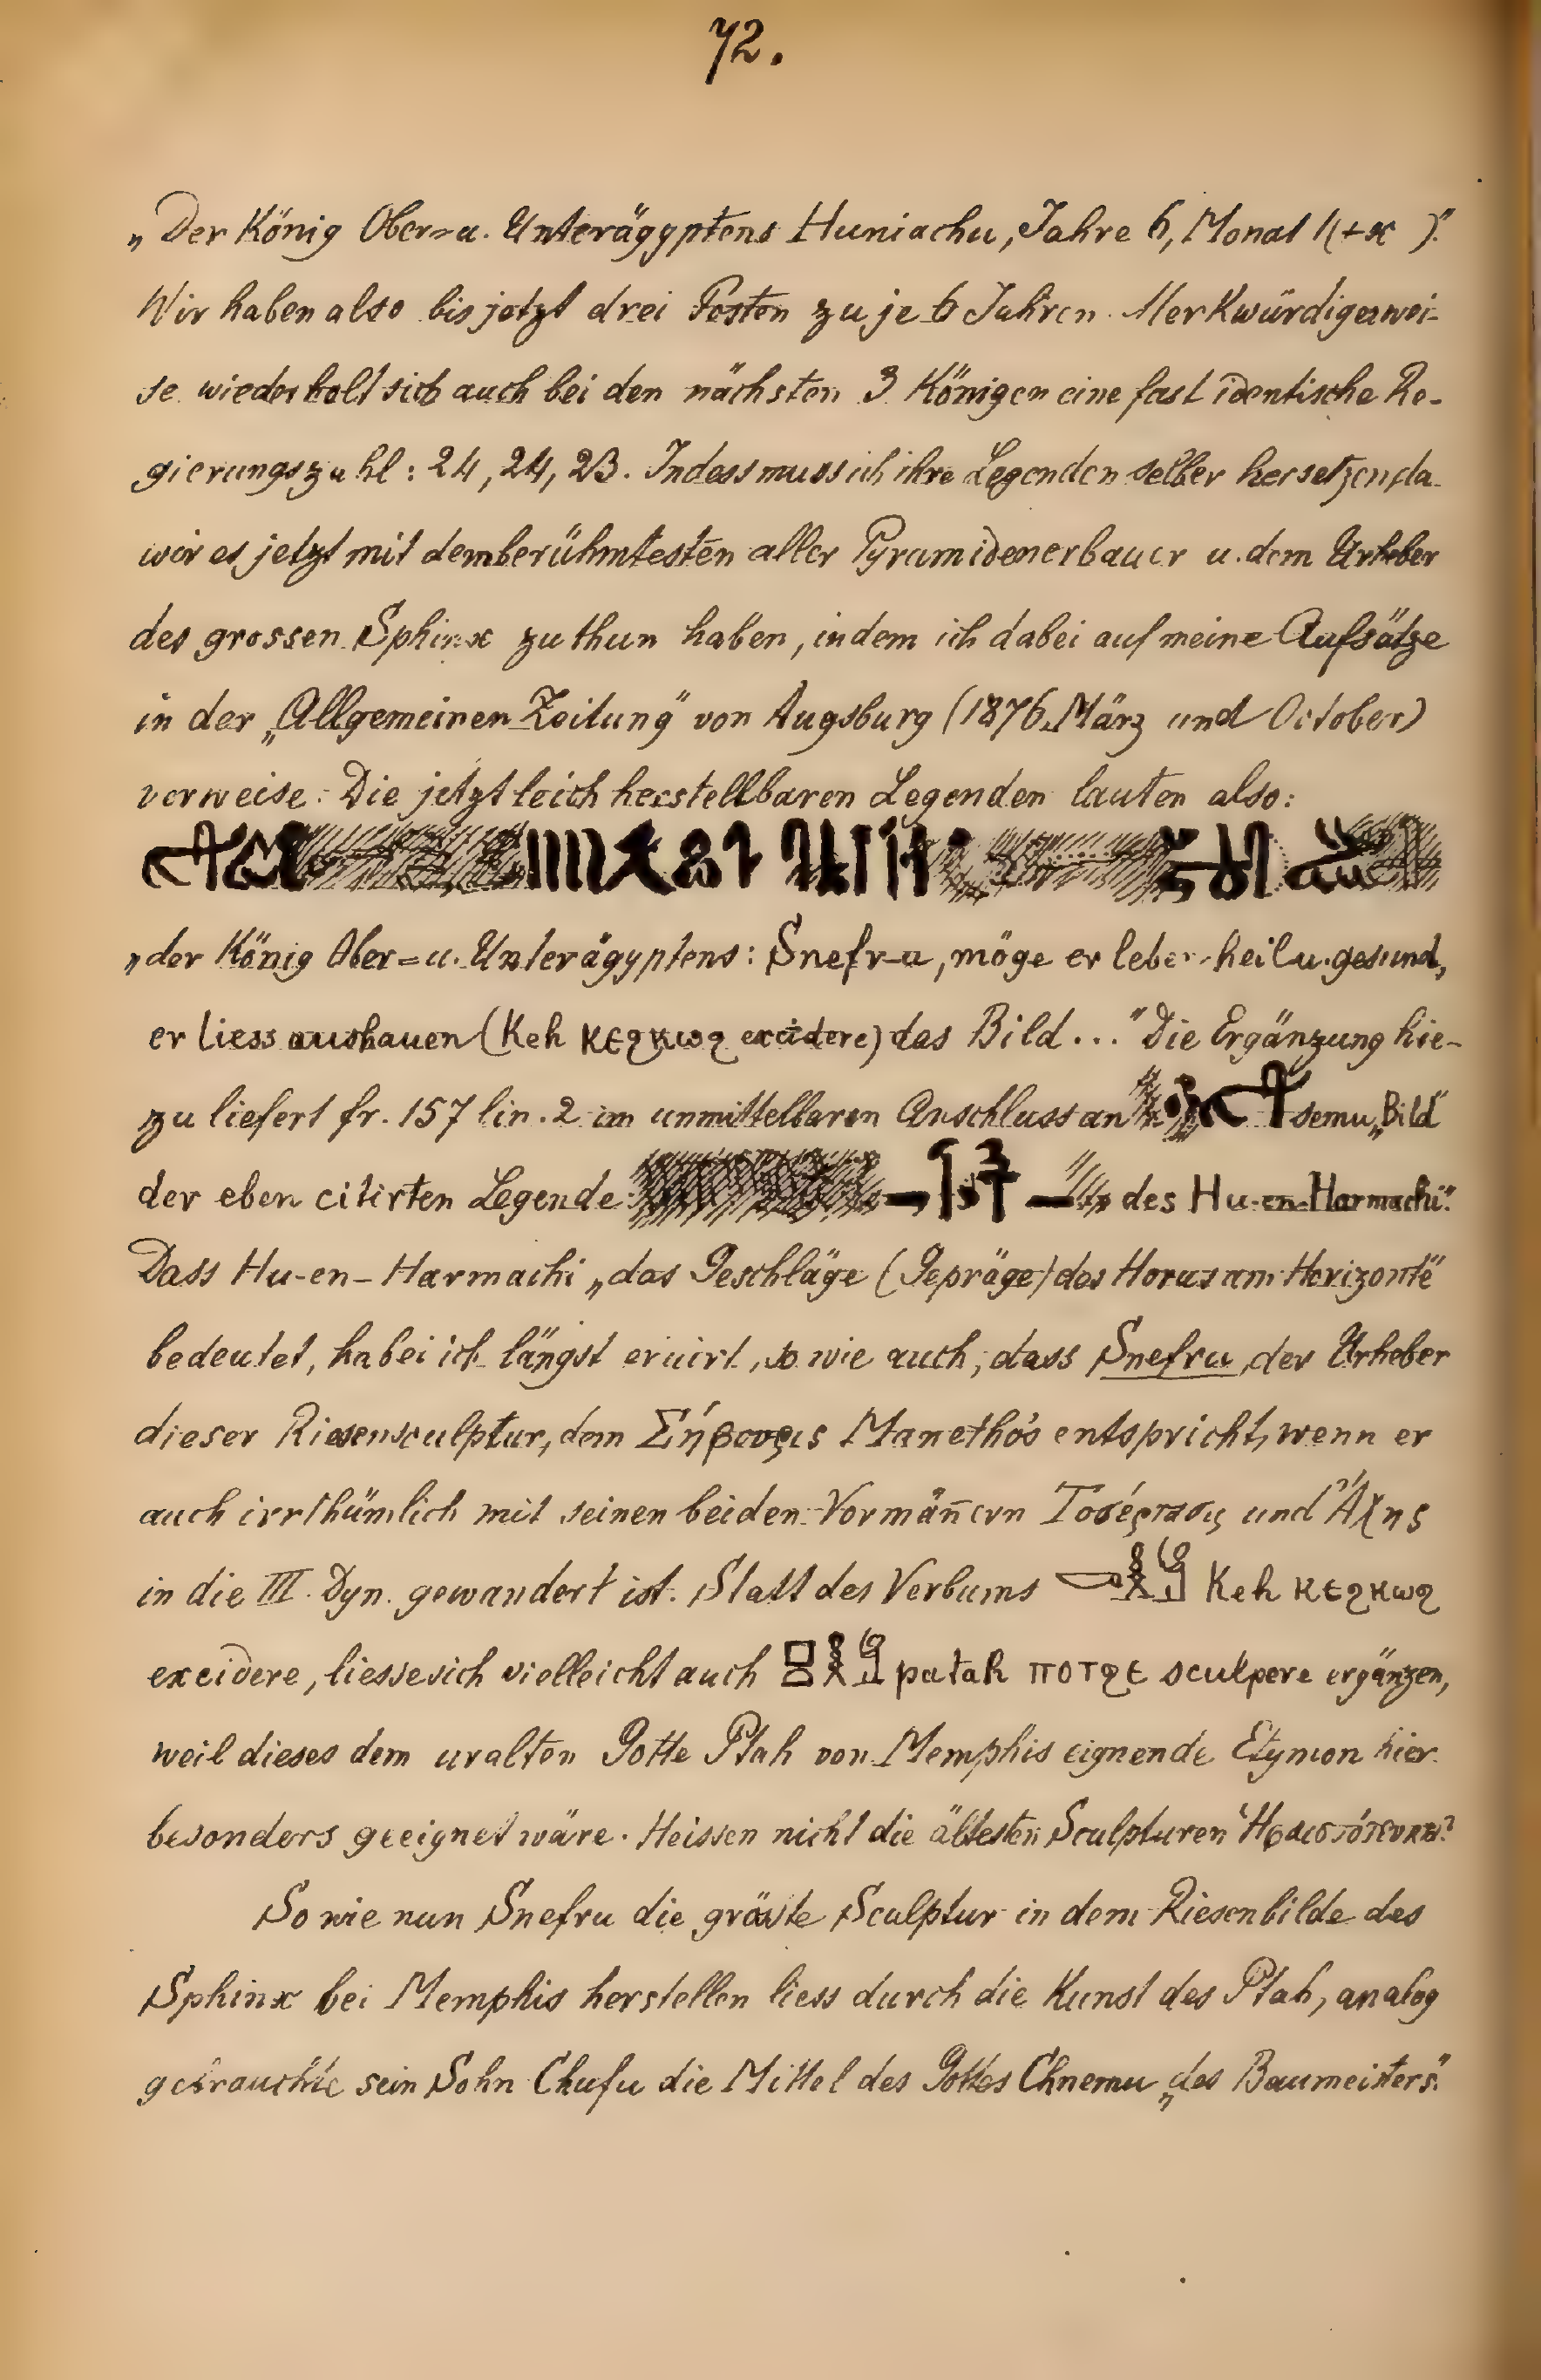 72.
„Der König Ober- u. Unterägyptens Huniachu, Jahre 6, Monat 1(+x )."
Wir haben also bis jetzt drei Posten zu je 6 Jahren. Merkwürdigerwei-
se wiederholt sich auch bei den nächsten 3 Königen eine fast identische Re-
gierungszahl: 24, 24, 23. Indess muss ich ihre Legenden selber hersetzen, da
wir es jetzt mit dem berühmtesten aller Pyramidenerbauer u. dem Urheber
des grossen Sphinx zu thun haben, indem ich dabei auf meine Aufsätze
in der „Allgemeinen Zeitung" von Augsburg (1876 März und October)
verweise. Die jetzt leich herstellbaren Legenden lauten also:
„der König Ober= u. Unterägyptens: Snefr-u, möge er leben heil u. gesund,
er liess aushauen (Keh ⲕⲉϩⲕⲱϩ excidere) das Bild..." Die Ergänzung hie-
zu liefert fr. 157 lin. 2 im unmittelbaren Anschluss an semu „Bild"
der eben citirten Legende: des Hu-en-Harmachi".
Dass Hu-en-Harmachi „das Geschläge (Gepräge) des Horus am Horizonte"
bedeutet, habei ich längst eruirt, so wie auch, dass Snefru, der Urheber
dieser Riesensculptur, dem Σήφουρις Manetho's entspricht, wenn er
auch irrthümlich mit seinen beiden Vormäñern und Ἄχης
in die III. Dyn. gewandert ist. Statt des Verbums Keh ⲕⲉϩⲕⲱϩ
excidere, liesse sich vielleicht auch patah ⲡⲟⲧϩⲉ sculpere ergänzen,
weil dieses dem uralten Gotte Ptah von Memphis eignende Etymon hier
besonders geeignet wäre. Heissen nicht die ältesten Sculpturen
So wie nun Snefru die grösste Sculptur in dem Riesenbilde des
Sphinx bei Memphis herstellen liess durch die Kunst des Ptah, analog
gebrauchte sein Sohn Chufu die Mittel des Gottes Chnemu „des Baumeisters".